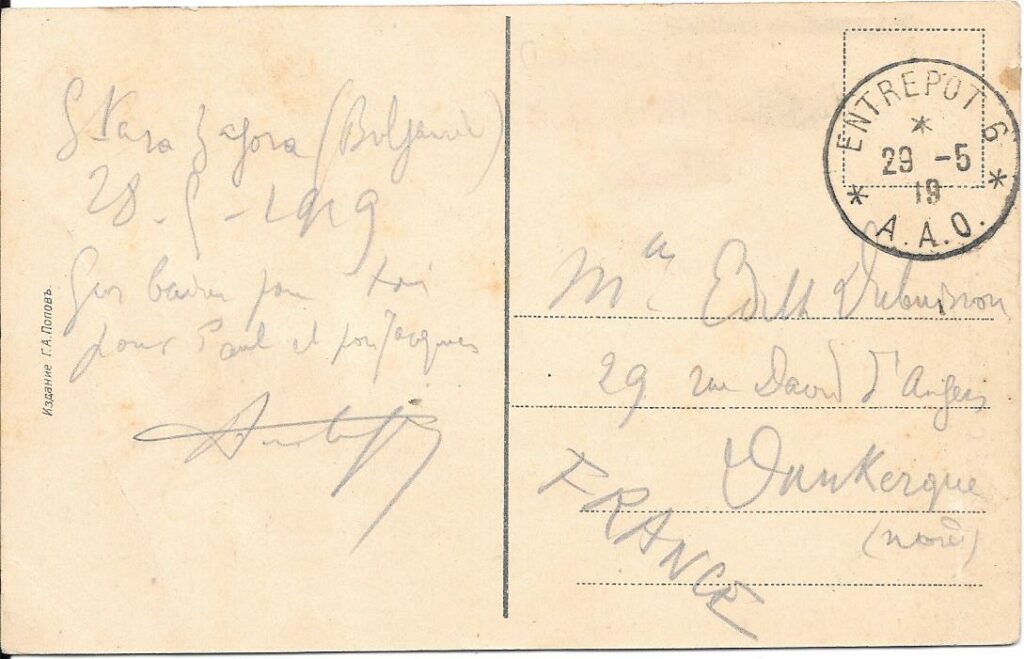 Stara Zagora (Bulgarie)
28-5-1919
Gros baiser pour toi
pour Paul et pour Jacques
Издание Г.А.Поповъ.
ENTREPOT 6
* 29 -5 *
19
A.A.O.
Mlle Edith
29 rue David d'Angers
Dunkerque
(nord)
FRANCE